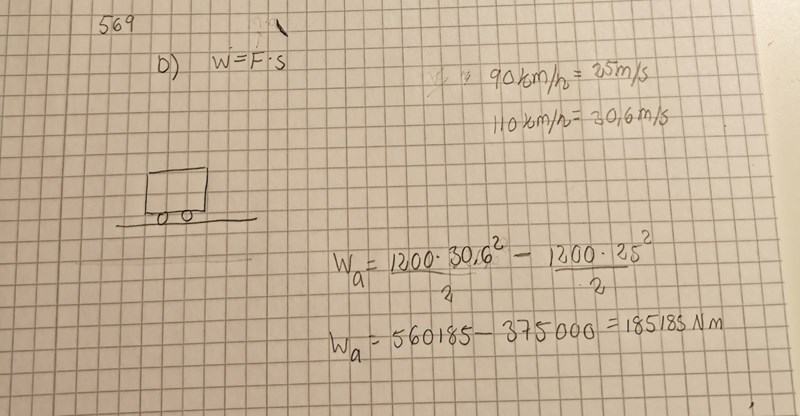 569
b) W=F·s
90km/h = 25m/s
110km/h = 30,6m/s
Wa = 1200·30,6²/2 − 1200·25²/2
Wa = 560185 − 375000 = 185185 Nm